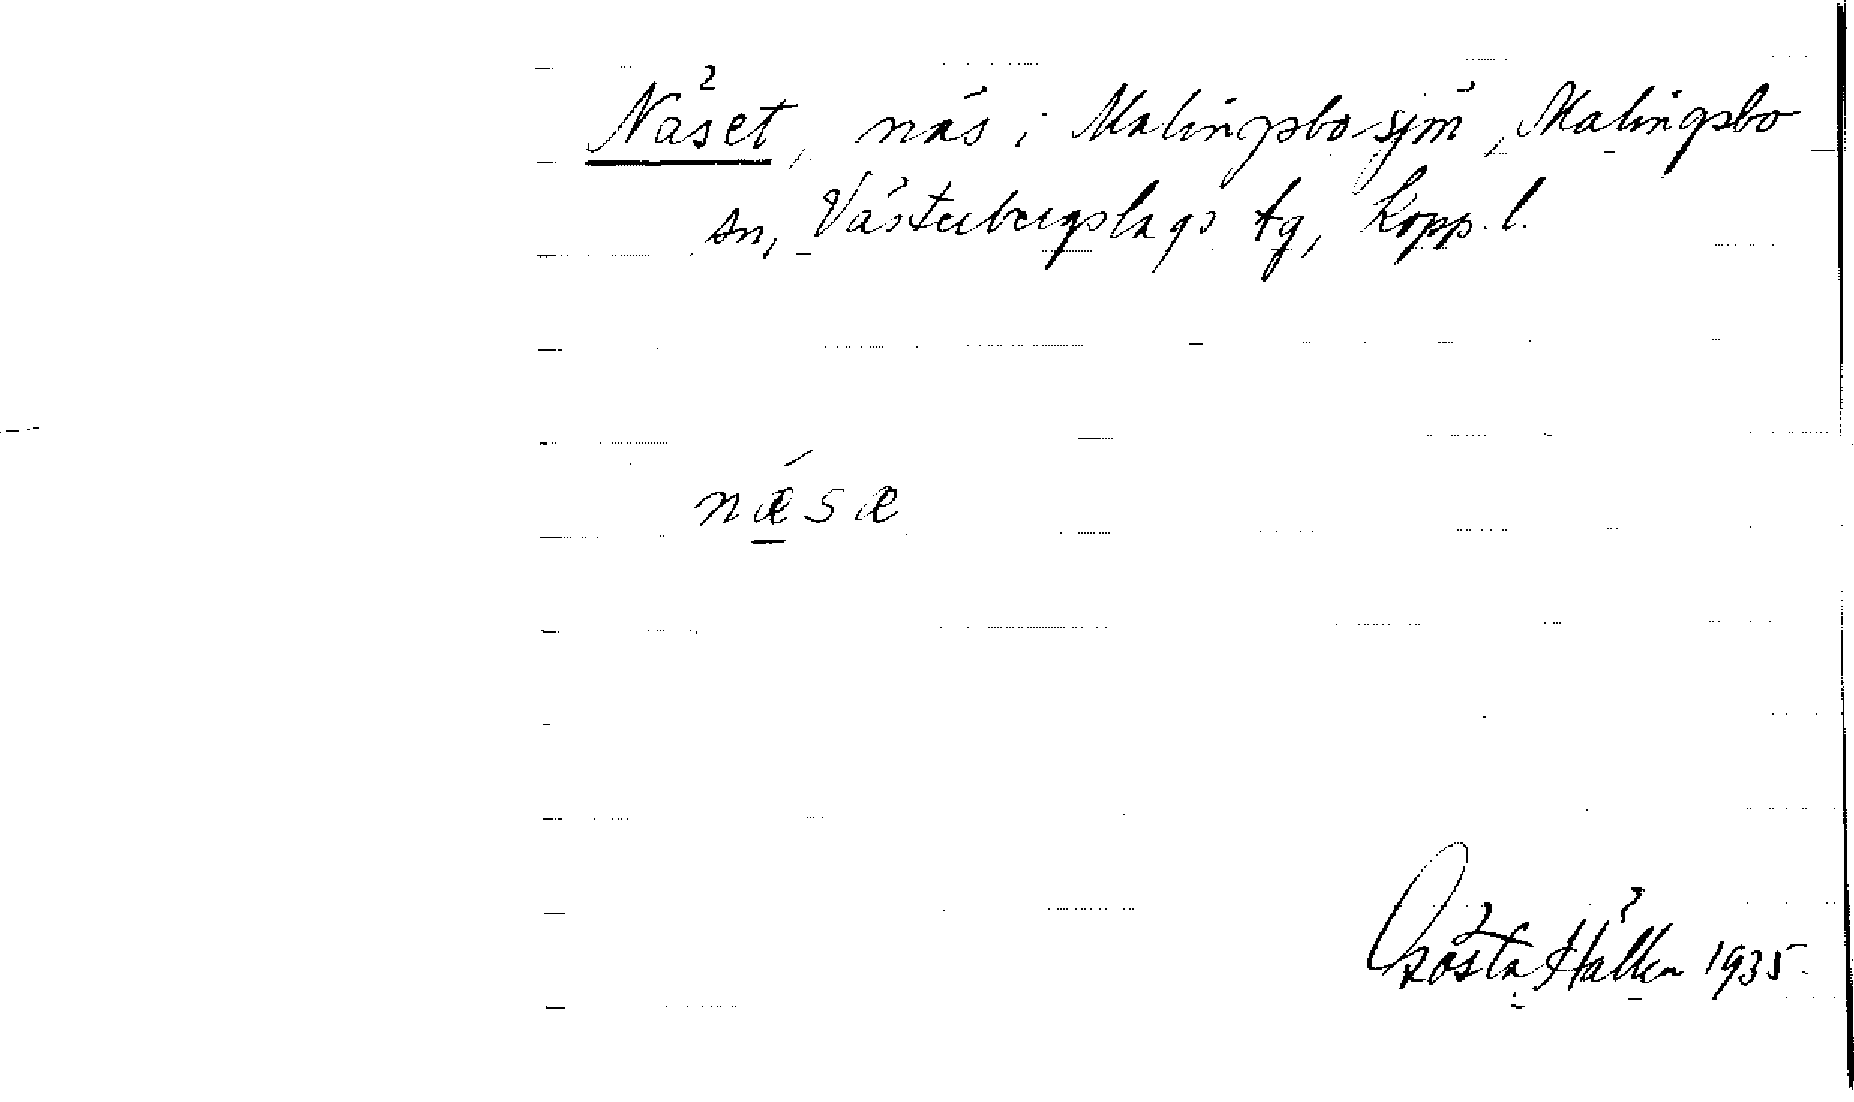 Näset, näs i Malingsbosjön, Malingsbo
sn, Västerbergslags tg, Kopp. l.
nǽ̲sæ
Gösta Hallén 1935